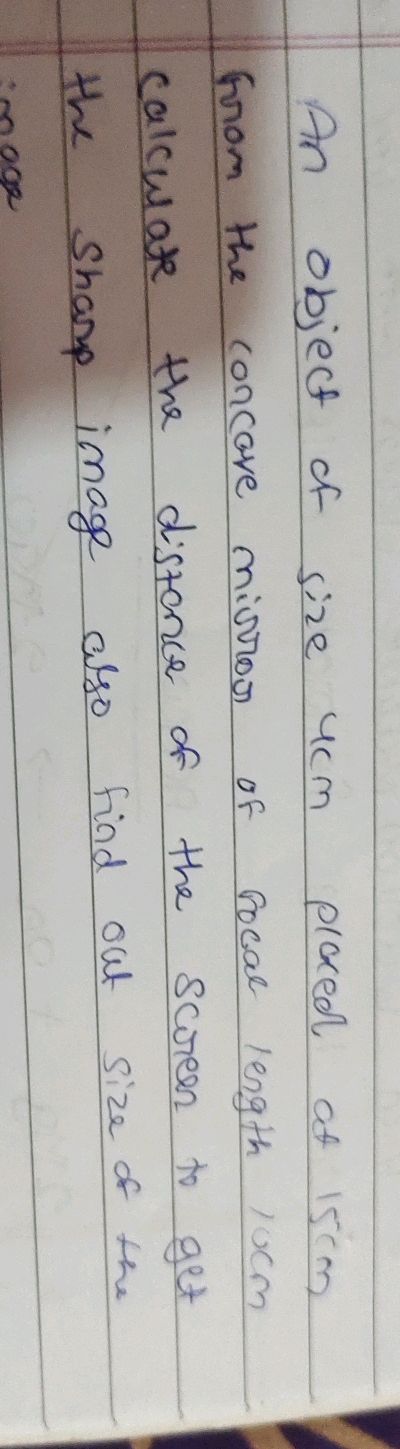 An object of size 4cm placed at 15cm
from the concave mirror of focal length 10cm
calculate the distance of the screen to get
the sharp image also find out size of the
image